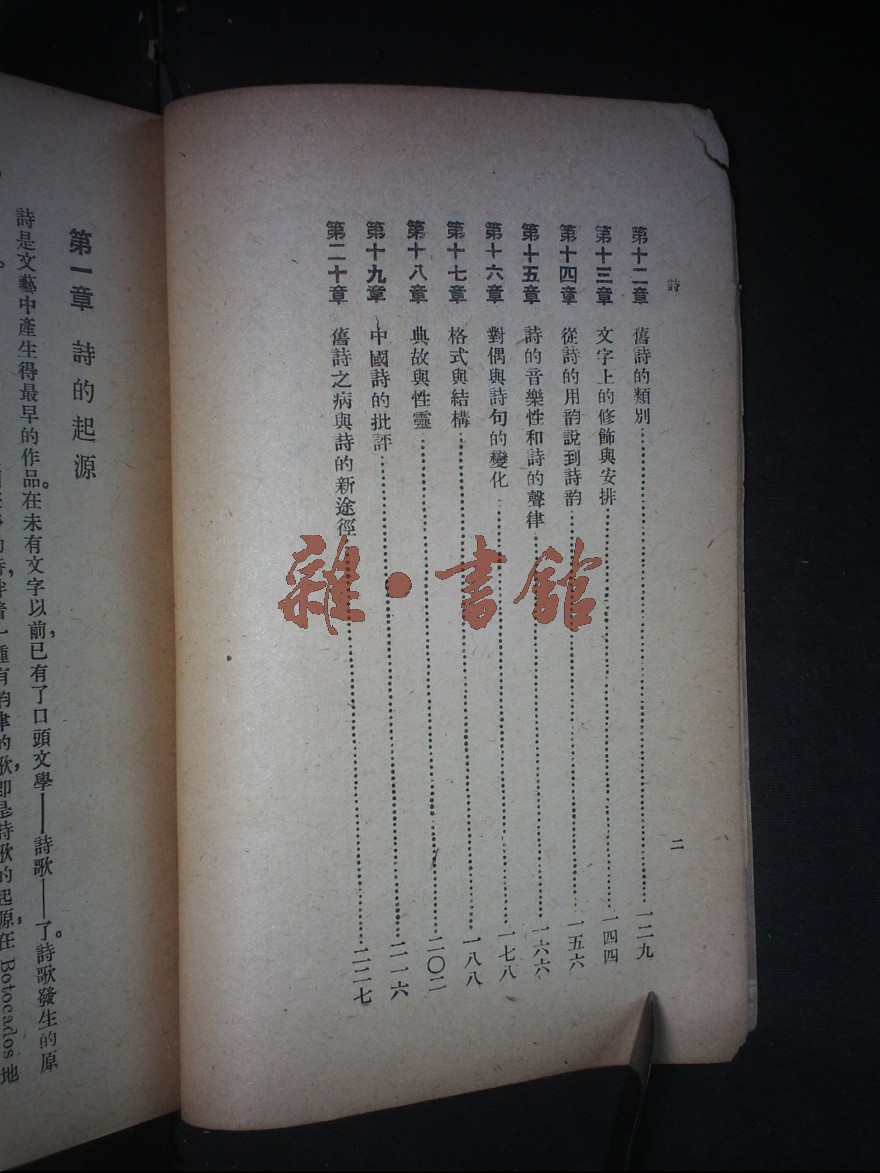 詩
第十二章 舊詩的類別……一二九
第十三章 文字上的修飾與安排……一四四
第十四章 從詩的用韵說到詩韵……一五六
第十五章 詩的音樂性和詩的聲律……一六六
第十六章 對偶與詩句的變化……一七八
第十七章 格式與結構……一八八
第十八章 典故與性靈……二〇二
第十九章 中國詩的批評……二一六
第二十章 舊詩之病與詩的新途徑……二二七
二
雜·書館
第一章 詩的起源
詩是文藝中產生得最早的作品。在未有文字以前,已有了口頭文學——詩歌——了。詩歌發生的原
種有韵律的歌,即是詩歌的起原,在Botocados地